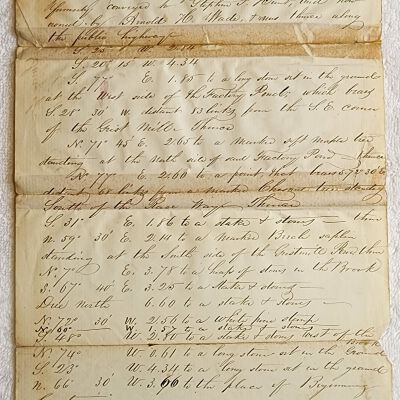 formerly conveyed to Stephen F. and now
owned by Arnold H. Wade, & runs thence along
the public highway
S. 25° W. 2.14
S. 20° 15' W. 4.34
S. 77° E. 1.85 to a long stone set in the ground
at the West side of the Factory Pond, which bears
S. 28° 30' W. distant 83 links from the S.E. corner
of the Grist Mill Thence
N. 71° 45' E. 2.65 to a marked soft maple tree
standing at the North side of said Factory Pond Thence
N. 77° E. 2.00 to a point that bears 30' E
dist. links from a marked Chesnut tree standing
South of the Race Way Thence
S. 31° E. 1.86 to a stake & stones — then
N. 59° 30' E. 2.14 to a marked Birch saplin
standing at the South side of the Gristmill Pond then
N. 7° E. 3.78 to a heap of stones in the Brook
S. 67° 40' E. 3.25 to a stake & stones
Due North 6.60 to a stake & stones —
N. 72° 30' W. 2.56 to a white pine stump
N. 60° W. 1.57 to a stake & stones
S. 48° W. 2.80 to a stake & stones East of the Brook
N. 74° W. 0.61 to a long stone set in the Ground
S. 23° W. 4.34 to a long stone set in the ground
N. 66° 30' W. 3.66 to the place of Beginning